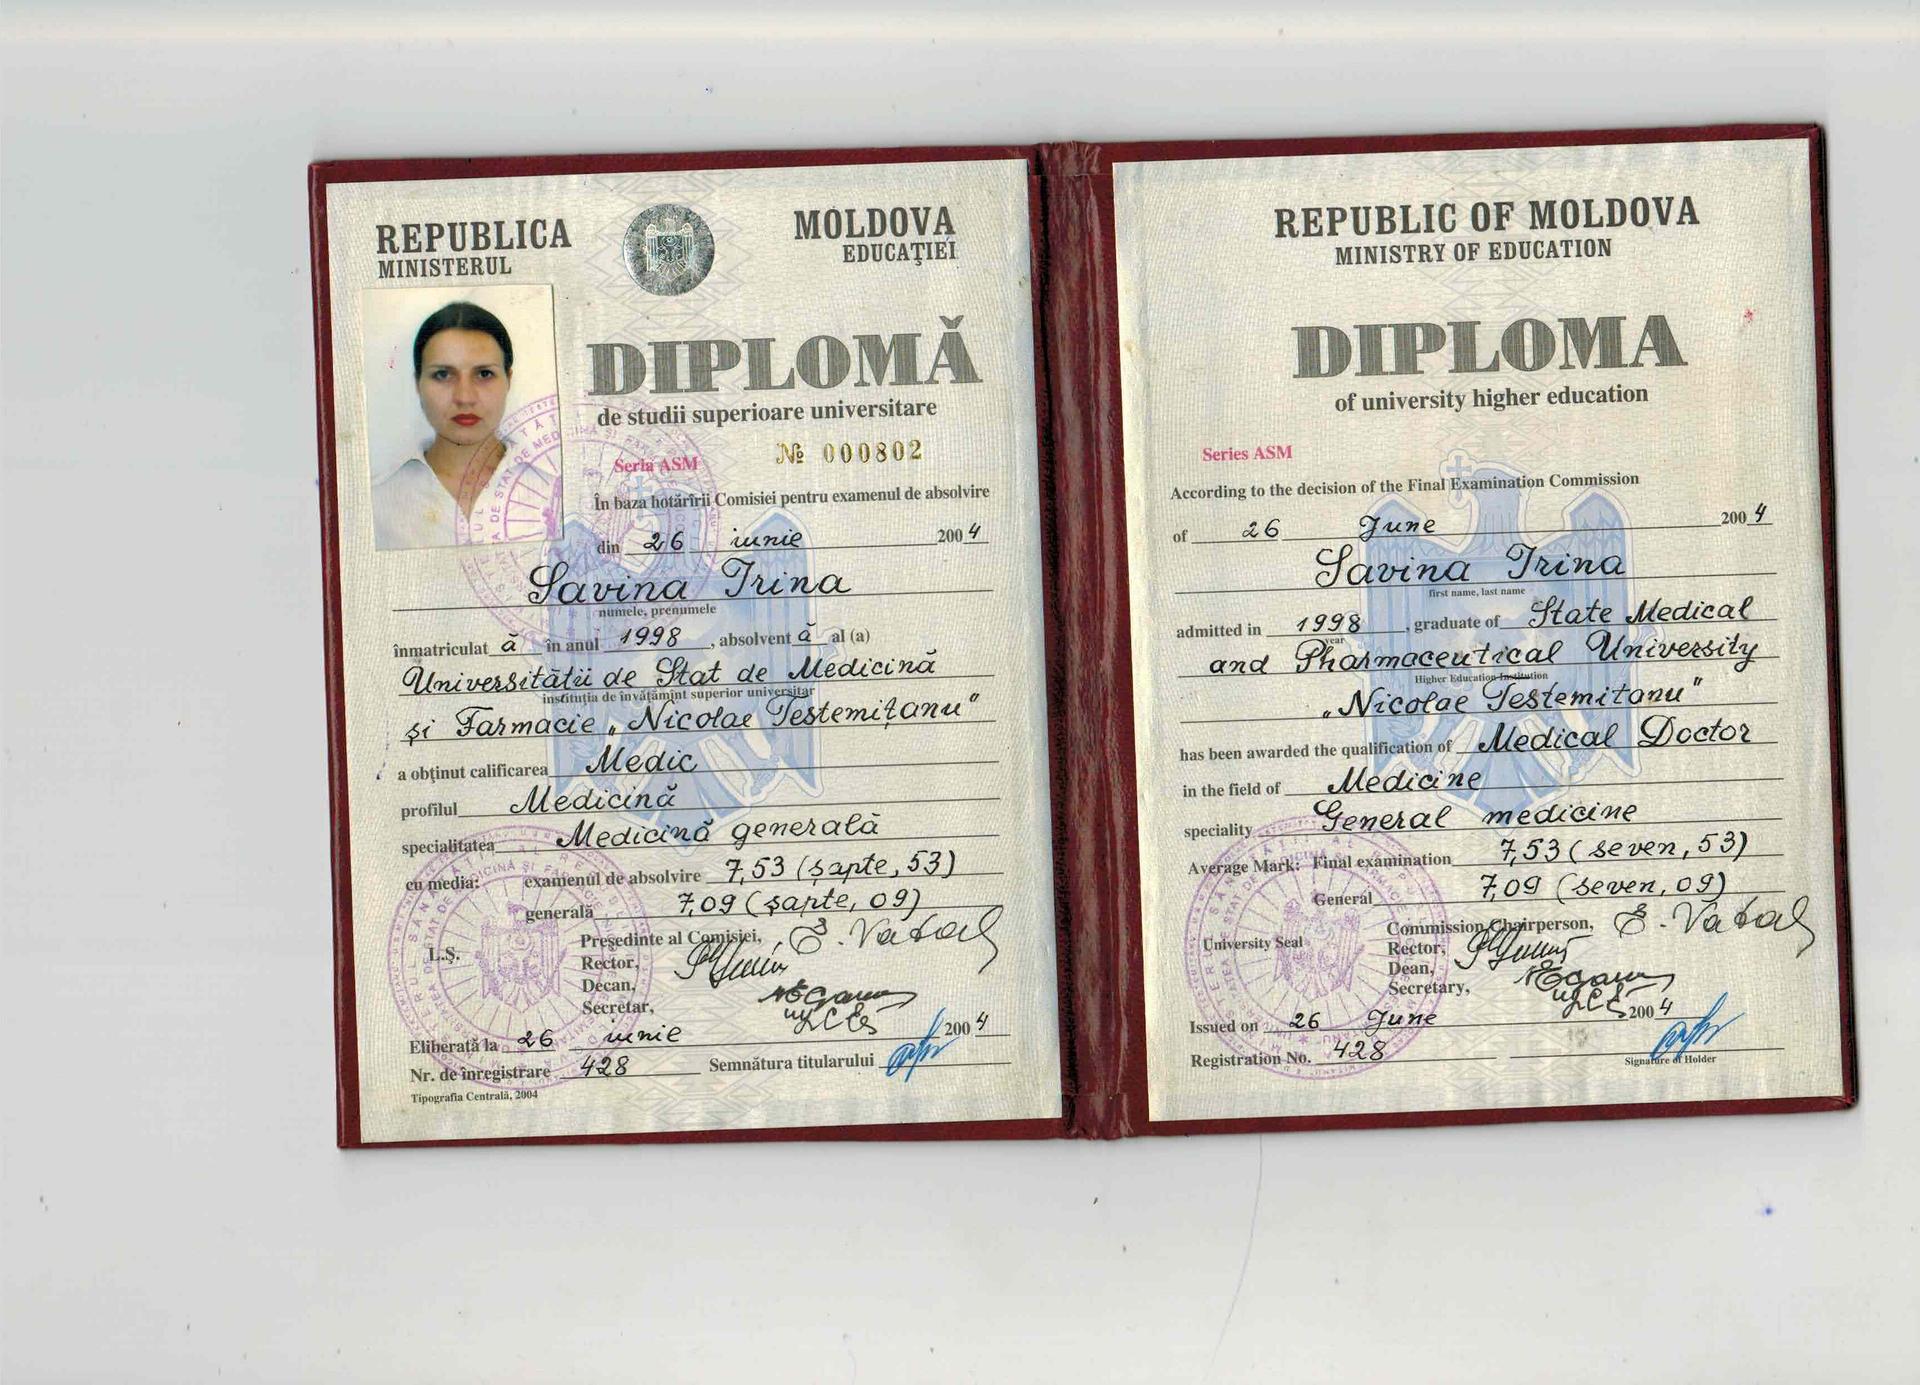 REPUBLICA MOLDOVA
MINISTERUL EDUCAŢIEI
DIPLOMĂ
de studii superioare universitare
Seria ASM № 000802
În baza hotărîrii Comisiei pentru examenul de absolvire
din 26 iunie 2004
Savina Irina
numele, prenumele
înmatriculat ă în anul 1998, absolvent ă al (a)
Universității de Stat de Medicină
instituția de învățămînt superior universitar
şi Farmacie „Nicolae Testemiţanu"
a obţinut calificarea Medic
profilul Medicină
specialitatea Medicină generală
cu media: examenul de absolvire 7,53 (şapte, 53)
generală 7,09 (şapte, 09)
L.Ş. Preşedinte al Comisiei,
Rector,
Decan,
Secretar,
Eliberată la 26 iunie 2004
Nr. de înregistrare 428 Semnătura titularului
Tipografia Centrală, 2004
REPUBLIC OF MOLDOVA
MINISTRY OF EDUCATION
DIPLOMA
of university higher education
Series ASM
According to the decision of the Final Examination Commission
of 26 June 2004
Savina Irina
first name, last name
admitted in 1998, graduate of State Medical
year
and Pharmaceutical University
Higher Education Institution
„Nicolae Testemitanu"
has been awarded the qualification of Medical Doctor
in the field of Medicine
speciality General medicine
Average Mark: Final examination 7,53 (seven, 53)
General 7,09 (seven, 09)
Commission Chairperson,
University Seal Rector,
Dean,
Secretary,
Issued on 26 June 2004
Registration No. 428
Signature of Holder